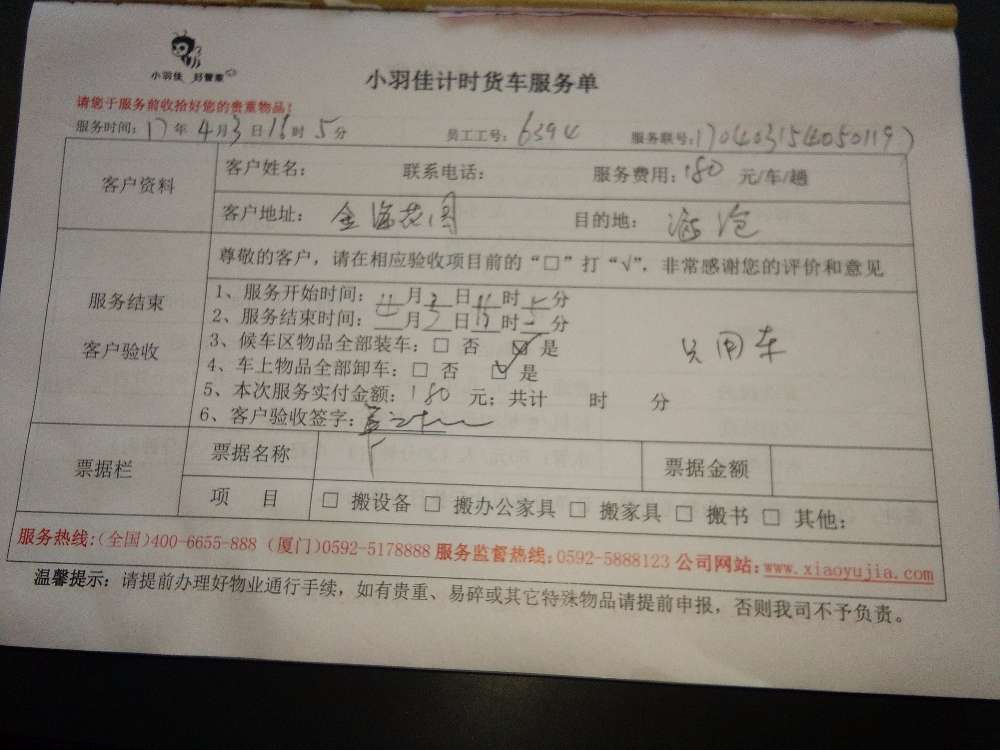 小羽佳 好管家
小羽佳计时货车服务单
请您于服务前收拾好您的贵重物品！
服务时间：17年4月3日16时5分 员工工号：6394 服务联号：1704031540501197
客户资料
客户姓名： 联系电话： 服务费用：180 元/车/趟
客户地址：金海花园 目的地：海沧
服务结束
客户验收
尊敬的客户，请在相应验收项目前的“□”打“√”，非常感谢您的评价和意见
1、服务开始时间：4月3日16时5分
2、服务结束时间：4月3日 时 分
3、候车区物品全部装车：□ 否 ☑ 是
4、车上物品全部卸车：□ 否 ☑ 是
只用车
5、本次服务实付金额：180 元；共计 时 分
6、客户验收签字：
票据栏
票据名称 票据金额
项 目 □ 搬设备 □ 搬办公家具 □ 搬家具 □ 搬书 □ 其他：
服务热线：（全国）400-6655-888（厦门）0592-5178888 服务监督热线：0592-5888123 公司网站：www.xiaoyujia.com
温馨提示：请提前办理好物业通行手续，如有贵重、易碎或其它特殊物品请提前申报，否则我司不予负责。